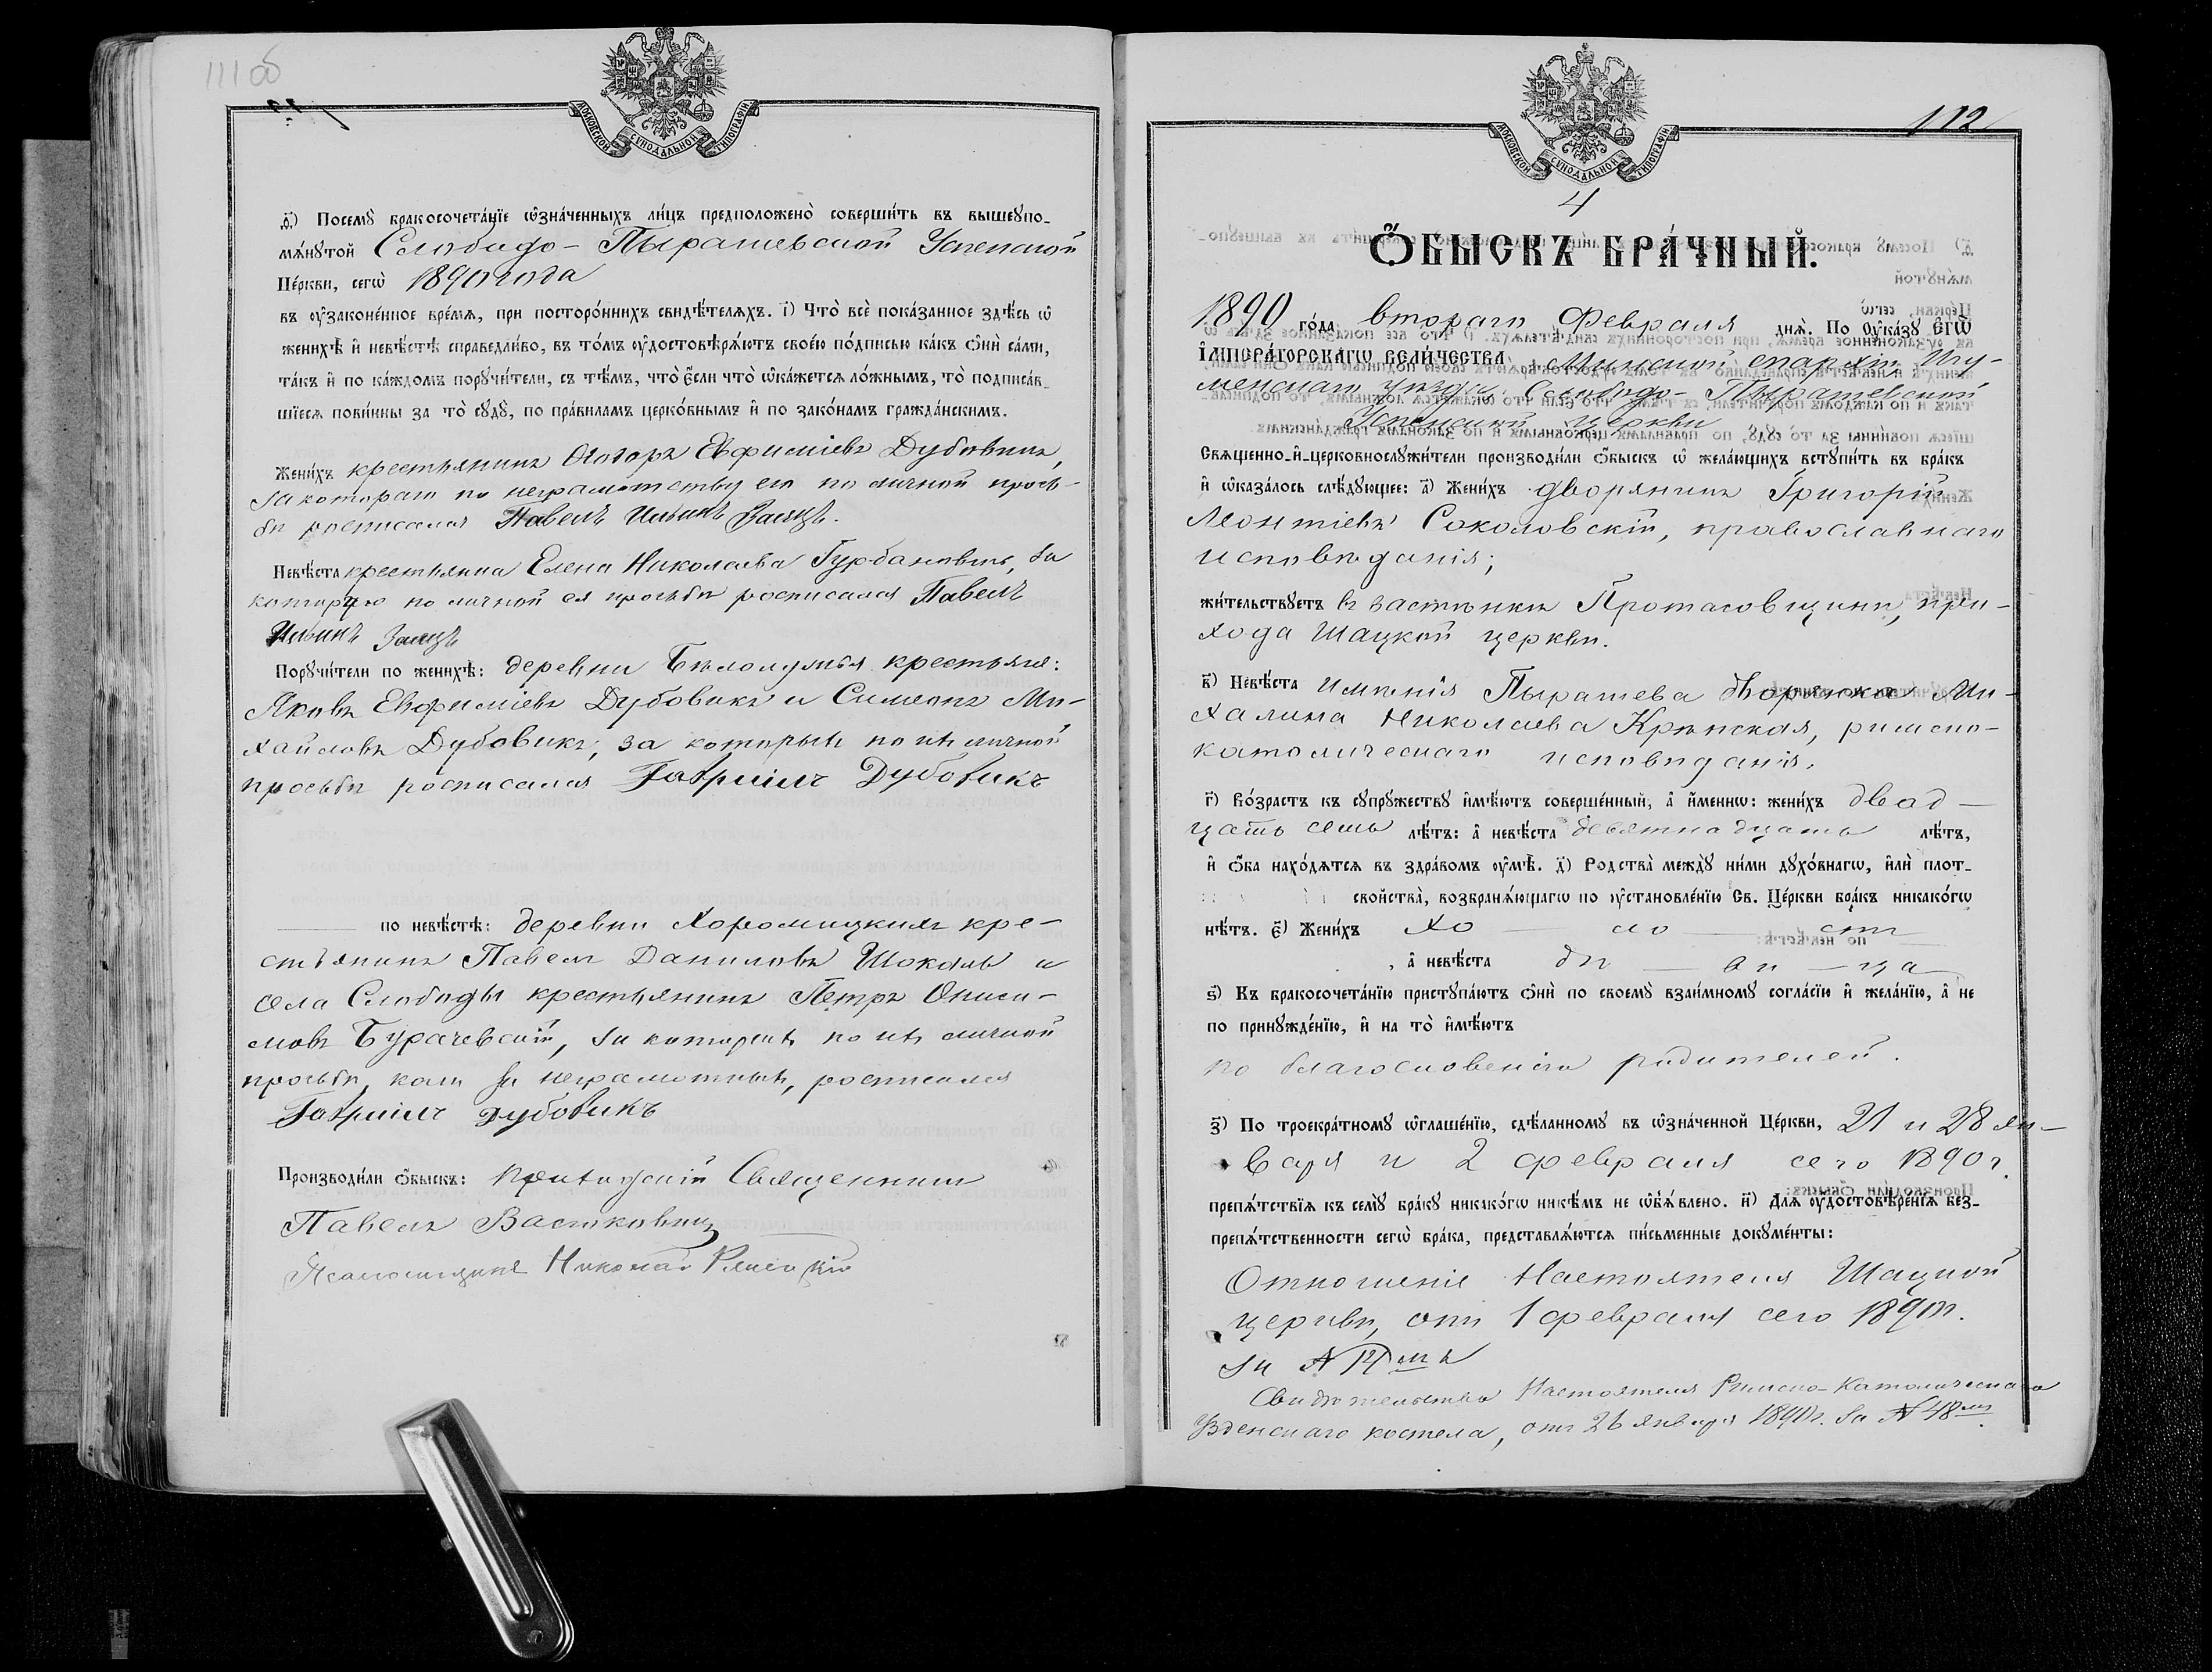 111 об
МОСКОВСКОЙ СѴНОДАЛЬНОЙ ТИПОГРАФІИ
ѳ҃) Посемꙋ̀ бракосочета́нїе ѡ҆зна́ченныхъ ли́цъ предположено̀ соверши́ть въ вышеꙋпо-
мѧ́нꙋтой Слободо-Пырашевской Успенской
Це́ркви, сегѡ̀ 1890 года
въ ᲂу҆законе́нное вре́мѧ, при посторо́ннихъ свидѣ́телѧхъ. і҃) Что̀ всѐ пока́занное здѣ́сь ѡ҆
женихѣ̀ и҆ невѣ́стѣ справедли́во, въ то́мъ ᲂу҆достовѣрѧ́ютъ свое́ю по́дписью ка́къ ѻ҆нѝ са́ми,
та́къ и҆ по ка́ждомъ порꙋчи́тели, съ тѣ́мъ, что̀ є҆́сли что̀ ѡ҆ка́жетсѧ ло́жнымъ, то̀ подписа́в-
шїесѧ пови́нны за то̀ сꙋдꙋ̀, по пра́виламъ церко́внымъ и҆ по зако́намъ гражда́нскимъ.
Жени́хъ крестьянинъ Ѳеодоръ Евфиміевъ Дубовикъ,
за котораго по неграмотству его по личной прось-
бѣ росписался Павелъ Ильинъ Заяцъ.
Невѣ́ста крестьянка Елена Николаева Гурбановичъ, за
которую по личной ея просьбѣ росписался Павелъ
Ильинъ Заяцъ
Порꙋчи́тели по женихѣ̀: деревни Бѣлолужья крестьяне:
Яковъ Евфиміевъ Дубовикъ и Симеонъ Ми-
хайловъ Дубовикъ, за которыхъ по ихъ личной
просьбѣ росписался Гавріилъ Дубовикъ
по невѣ́стѣ: деревни Хоромицкихъ кре-
стьянинъ Павелъ Даниловъ Шокаль и
села Слободы крестьянинъ Петръ Ониси-
мовъ Бурачевскій, за которыхъ по ихъ личной
просьбѣ, какъ за неграмотныхъ, росписался
Гавріилъ Дубовикъ
Производи́ли ѻ҆́быскъ: приходскій Священникъ
Павелъ Васюковичъ
Псаломщикъ Николай
112
МОСКОВСКОЙ СѴНОДАЛЬНОЙ ТИПОГРАФІИ
4
Ѻ҆́БЫСКЪ БРА́ЧНЫЙ.
1890 го́да втораго Февраля днѧ̀. По ᲂу҆ка́зꙋ Є҆гѡ̀
І҆мпера́торскагѡ вели́чества, Минской епархіи, Игу-
менскаго уѣзда, Слободо-Пырашевской
Успенской церкви
Свѧщенно-и҆-церковнослꙋжи́тели производи́ли ѻ҆́быскъ ѡ҆ жела́ющихъ встꙋпи́ть въ бра́къ
и҆ ѡ҆каза́лось слѣ́дꙋющее: а҃) Жени́хъ дворянинъ Григорій
Леонтіевъ Соколовскій, православнаго
исповѣданія;
жи́тельствꙋетъ въ застѣнкѣ Протасовщинѣ, при-
хода Шацкой церкви.
в҃) Невѣ́ста имѣнія Пырашева дворянка Ми-
халина Николаева Крупская, римско-
католическаго исповѣданія.
г҃) Во́зрастъ къ сꙋпрꙋ́жествꙋ и҆мѣ́ютъ соверше́нный, а҆ и҆́меннѡ: жени́хъ двад-
цать семь лѣ́тъ: а҆ невѣ́ста девятнадцать лѣ́тъ,
и҆ ѻ҆́ба нахо́дѧтсѧ въ здра́вомъ ᲂу҆мѣ̀. д҃) Родства̀ междꙋ̀ ни́ми дꙋхо́внагѡ, и҆лѝ плот-
свойства̀, возбранѧ́ющагѡ по ᲂу҆становле́нїю Св. Це́ркви бра́къ никако́гѡ
нѣ́тъ. є҃) Жени́хъ хо — ло — стъ
, а҆ невѣ́ста дѣ — ви — ца
ѕ҃) Къ бракосочета́нїю пристꙋпа́ютъ ѻ҆нѝ по своемꙋ̀ взаи́мномꙋ согла́сїю и҆ жела́нїю, а҆ не
по принꙋжде́нїю, и҆ на то̀ и҆мѣ́ютъ
по благословенію родителей.
з҃) По троекра́тномꙋ ѡ҆глаше́нїю, сдѣ́ланномꙋ въ ѡ҆зна́ченной Це́ркви, 21 и 28 ян-
варя и 2 февраля сего 1890 г.
препѧ́тствїѧ къ семꙋ̀ бра́кꙋ никако́гѡ никѣ́мъ не ѡ҆б̾ѧ́влено. и҃) Длѧ ᲂу҆достовѣ́ренїѧ без-
препѧ́тственности сегѡ̀ бра́ка, представлѧ́ютсѧ пи́сьменные докꙋме́нты:
Отношеніе Настоятеля Шацкой
церкви, отъ 1 февраля сего 1890 г.
за №
Свидѣтельство Настоятеля Римско-Католическаго
Узденскаго костела, отъ 26 января 1890 г. за № 48мъ.